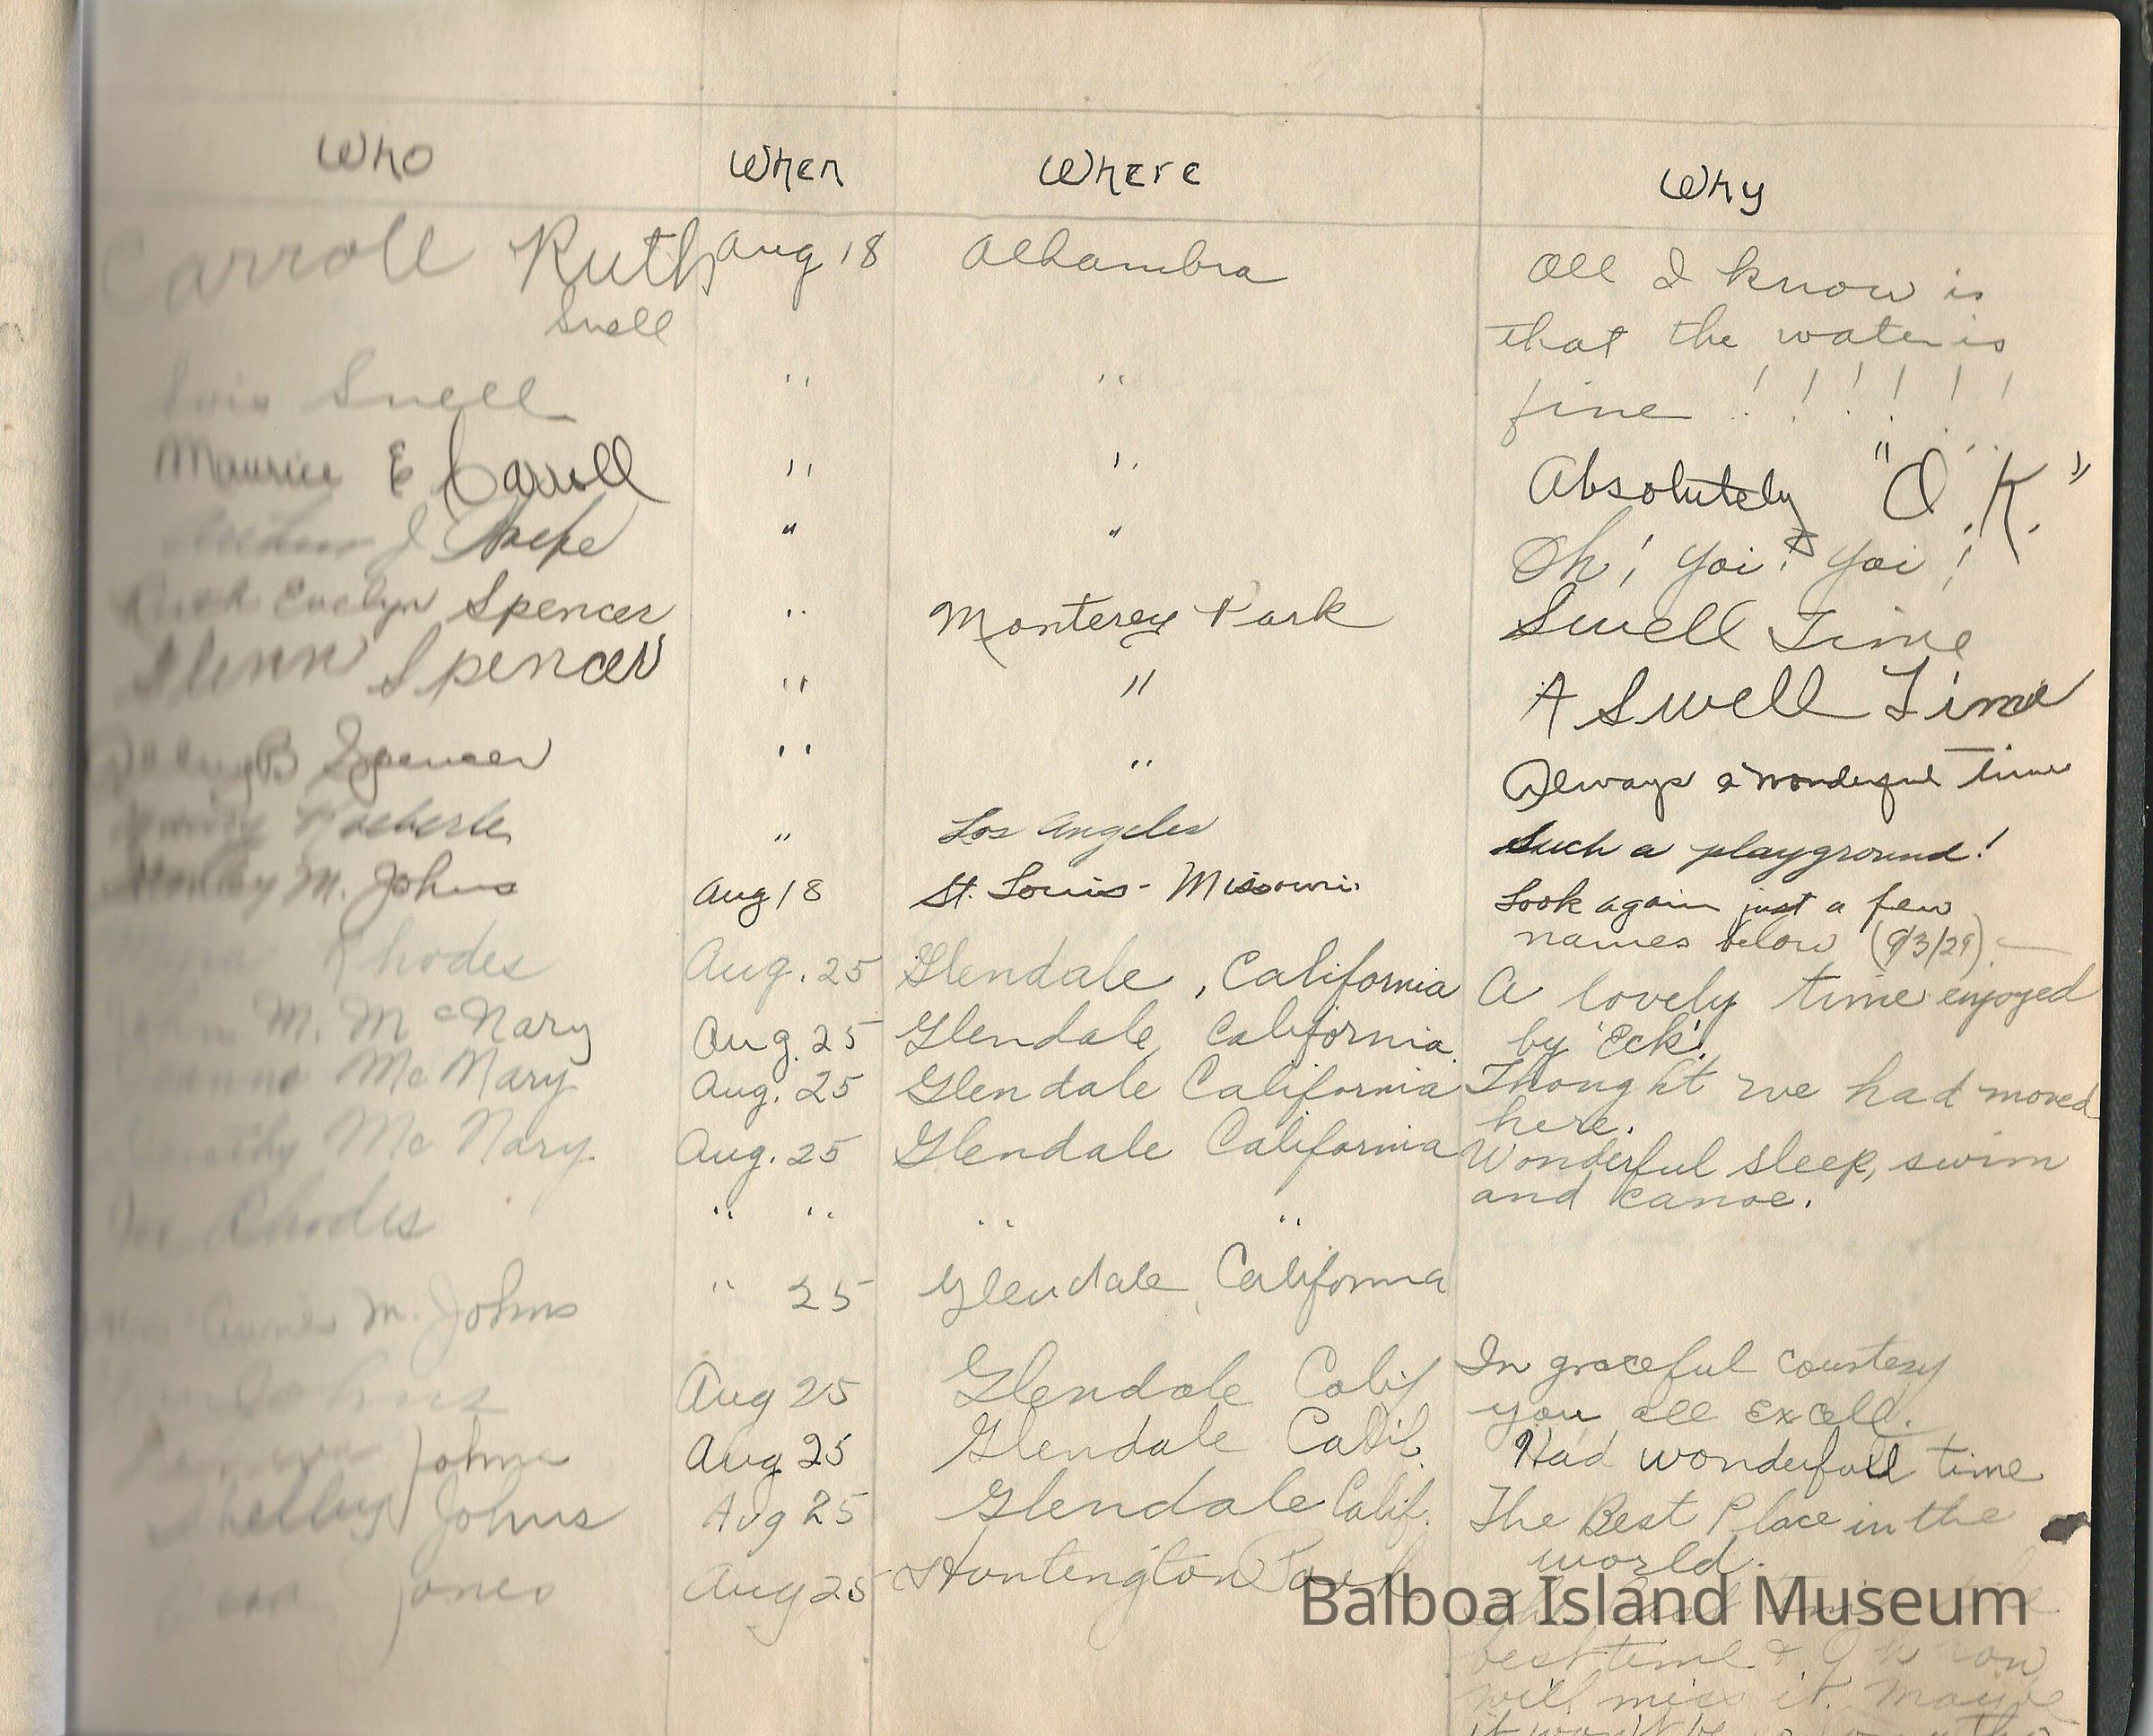 Who When Where Why
Carroll Ruth Aug 18 Alhambra All I know is
Snell that the water is
Lois Snell " " fine ! ! ! ! ! !
Maurice E Carroll " " Absolutely "O.K."
J " " Oh! Yoi! Yoi!
Ruth Evelyn Spencer " Monterey Park Swell Time
Glenn Spencer " " A Swell Time
B Spencer " " Always a wonderful time
" Los Angeles Such a playground!
M. Johns Aug 18 St. Louis - Missouri. Look again just a few
names below (9/3/29).
Rhodes Aug. 25 Glendale, California A lovely time enjoyed
M. McNary Aug. 25 Glendale, California. by 'Eck'.
McNary Aug. 25 Glendale California Thought we had moved
here.
Dorothy McNary. Aug. 25 Glendale California Wonderful sleep, swim
and canoe.
Rhodes " " " "
M. Johns " 25 Glendale, California
Aug 25 Glendale Calif In graceful courtesy
you all excell.
Johns Aug 25 Glendale Calif. Had wonderfull time
Shelley Johns Aug 25 Glendale Calif. The Best Place in the
world.
Jones Aug 25 Huntington Park
Balboa Island Museum
best time &
will miss it. Maybe
it won't be